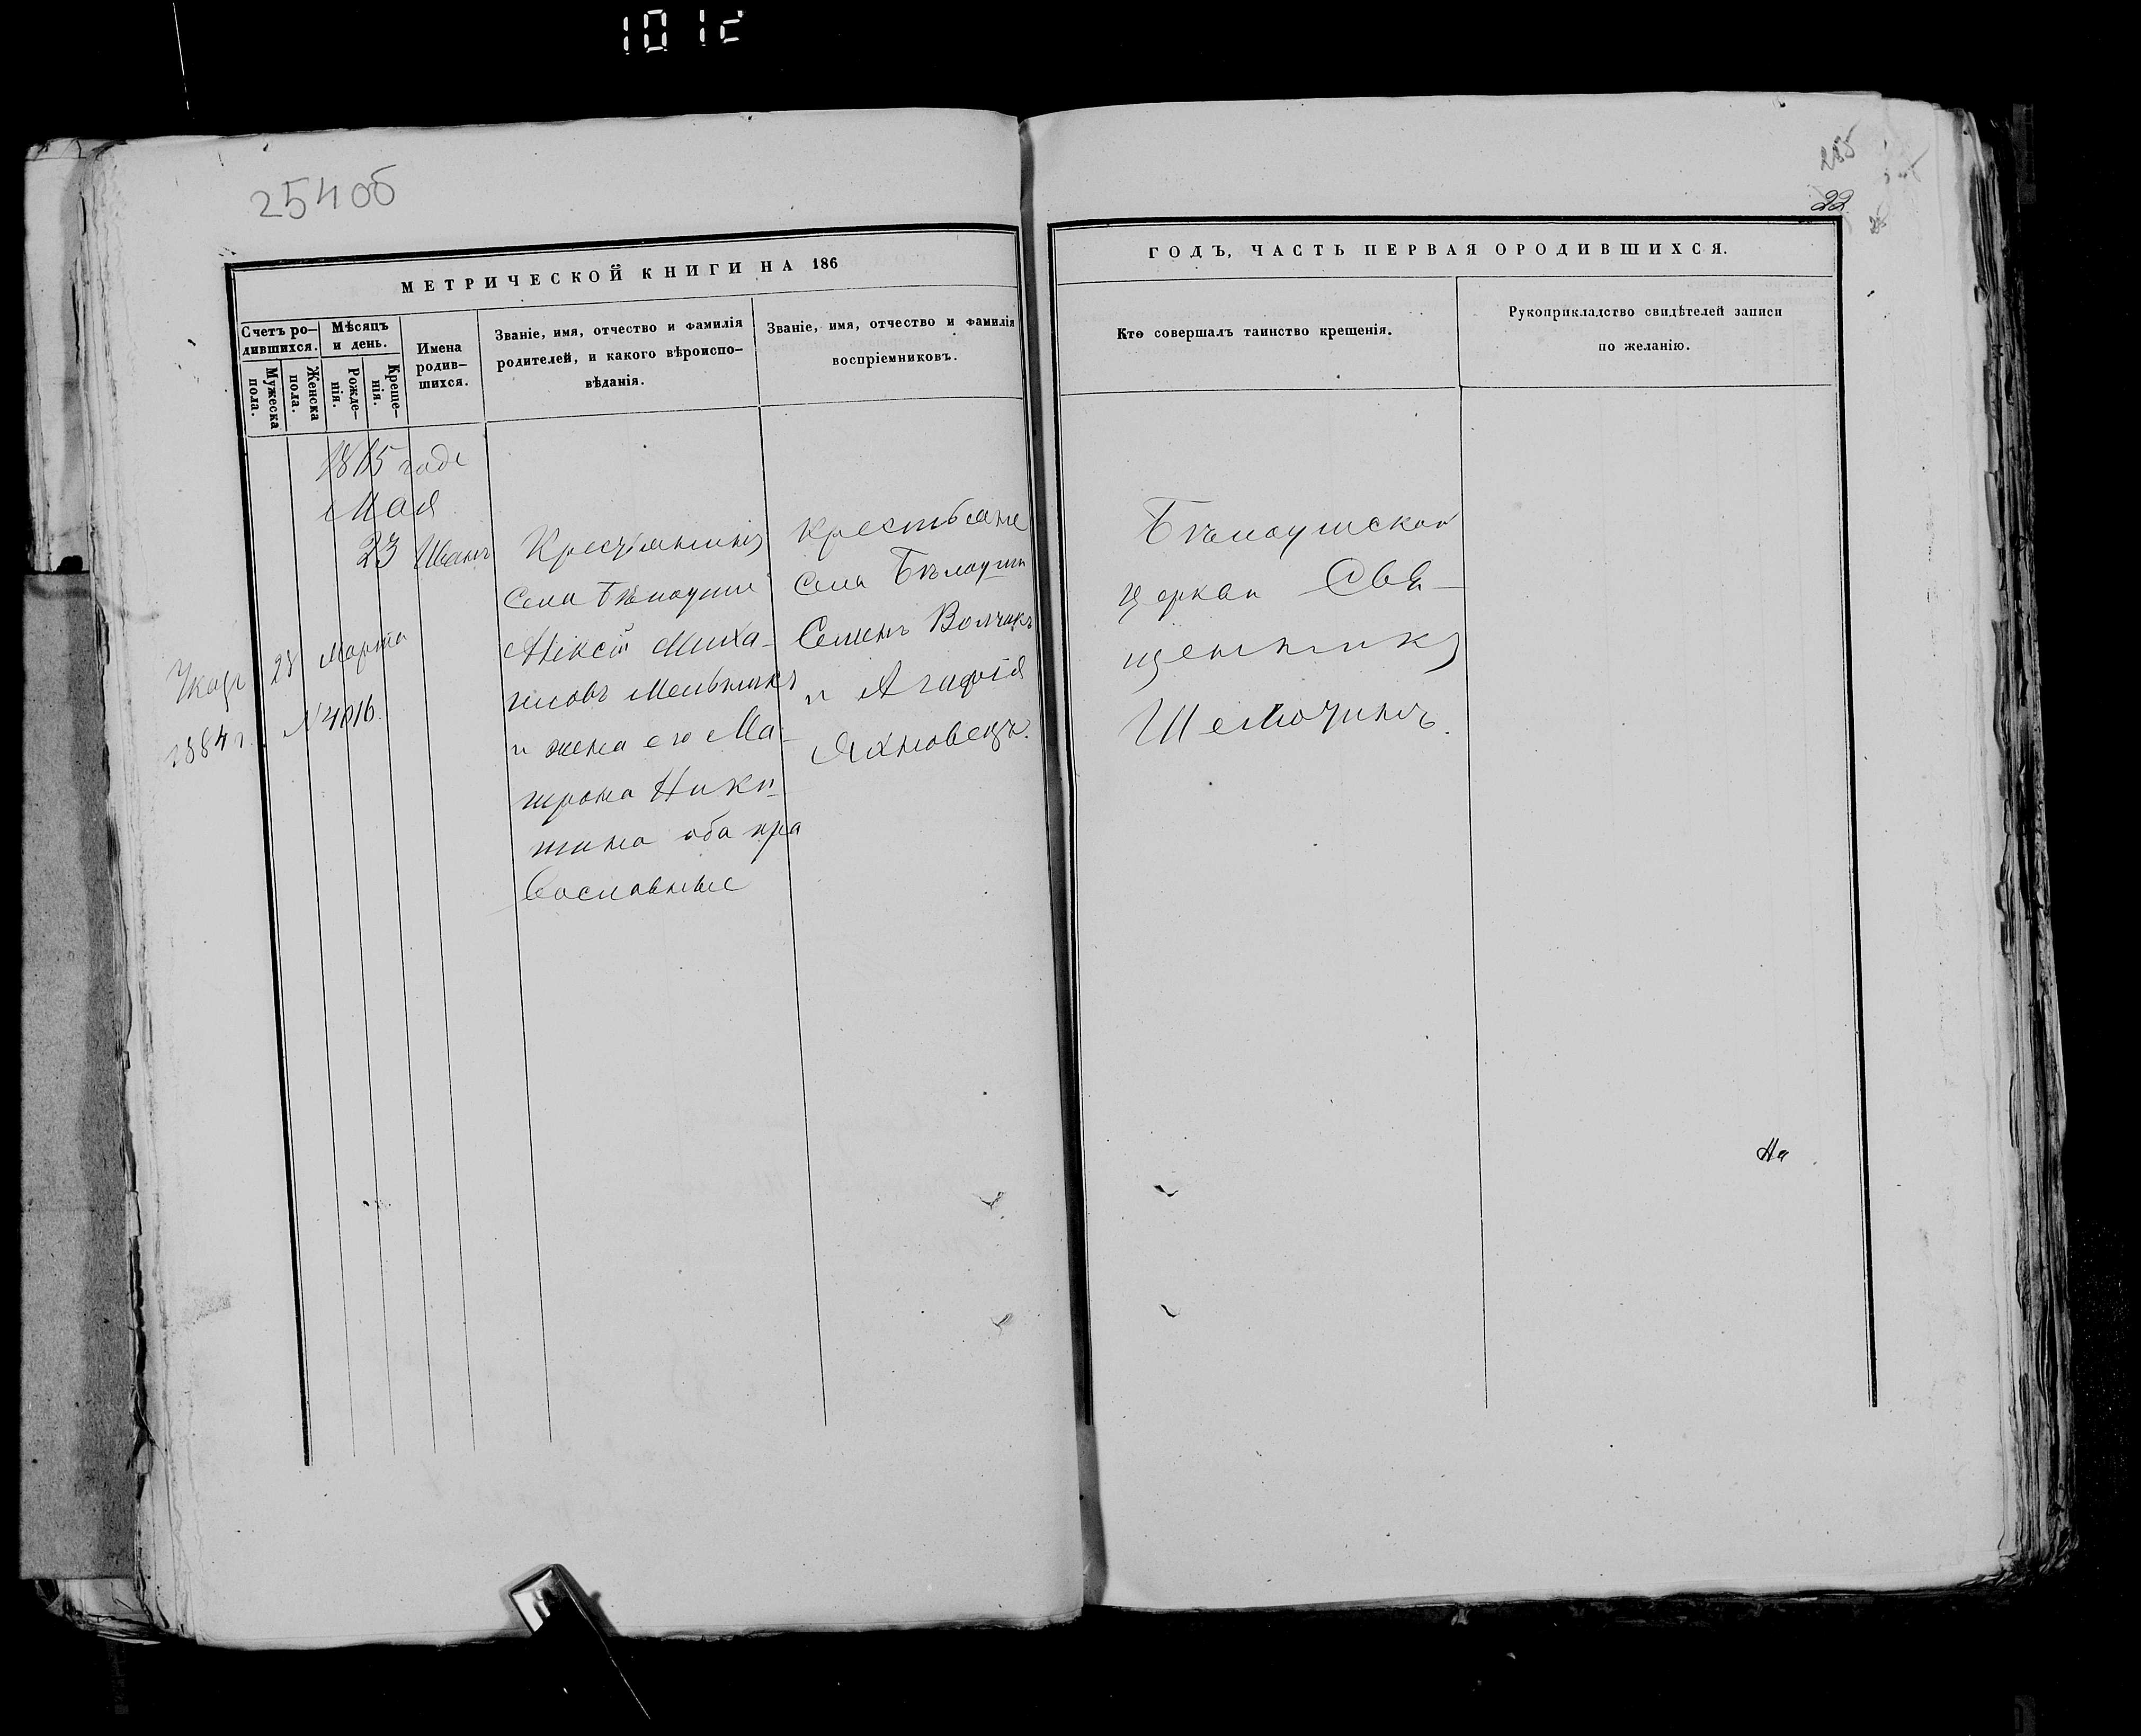 1012
254об
МЕТРИЧЕСКОЙ КНИГИ НА 186
Счетъ ро-
дившихся.
Мужеска
пола.
Женска
пола.
Мѣсяцъ
и день.
Рожде-
нія.
Креще-
нія.
Имена
родив-
шихся.
Званіе, имя, отчество и фамилія
родителей, и какого вѣроиспо-
вѣданія.
Званіе, имя, отчество и фамилія
воспріемниковъ.
1865 года
Мая
23 Иванъ
28 Марта
1884 г. №4816.
Крестьянинъ
села Бѣлоуши
Алексѣй Миха-
иловъ Мельникъ
и жена его Ма-
трона Ники-
тина оба пра
вославные
Крестьяне
села Бѣлоуши
Семенъ Волчикъ
и Агафія
Яхновецъ.
255
22
ГОДЪ, ЧАСТЬ ПЕРВАЯ ОРОДИВШИХСЯ.
Кто совершалъ таинство крещенія.
Рукоприкладство свидѣтелей записи
по желанію.
Бѣлоушской
церкви Свя-
щенникъ
Шеметилло.
На